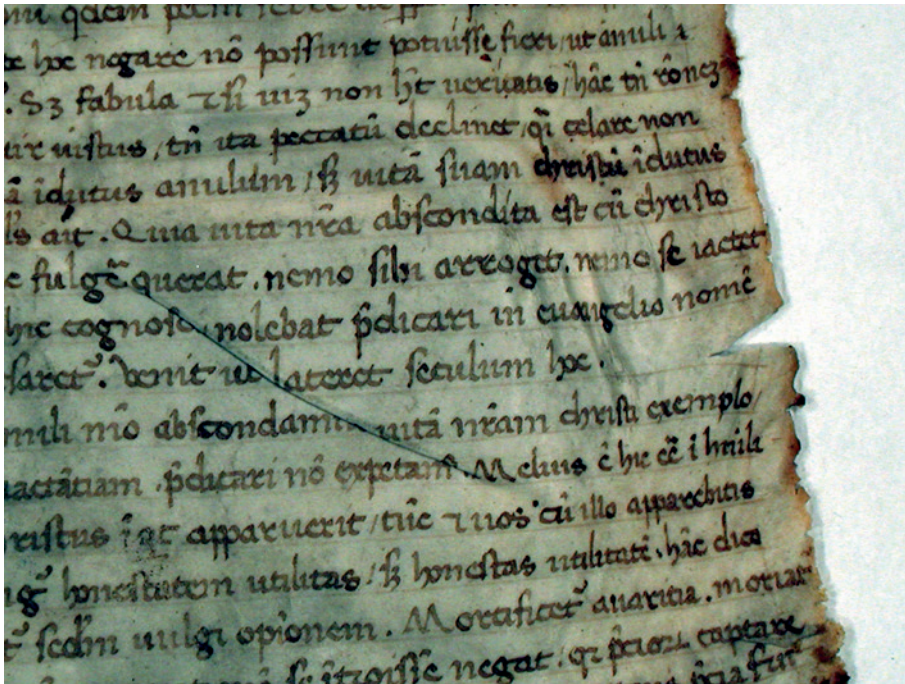 hoc negare nō possunt potuisse fieri, ut anuli
Sꝫ fabula ⁊ si uiꝫ non hꝫt ueritatis, hāc tn̄ rōneꝫ
uir uistus, tn̄ ita peccatū declinet, celare non
īdutus anulum, sꝫ uitā suam christū īdutus
ait. Quia uita nr̄a abscondita est cū christo
fulgē querat. nemo sibi arroget. nemo se iactet
hic cognosc nolebat p̄dicari in euuangelio nomē
saret᷑. Venit ut lateret seculum hoc.
mili mō abscondam uitā nr̄am christi exemplo,
iactātiam. p̄dicari nō expetam᷑. Melius ē hic eē ī humili
ristus apparuerit, tūc ⁊ uos cū illo apparebitis
honestatem utilitas, sꝫ honestas utilitatē, hāc dico
scd̄m uulgi opīonem. Mortificet᷑ auaritia. moriat᷑
ītroisse negat. captare